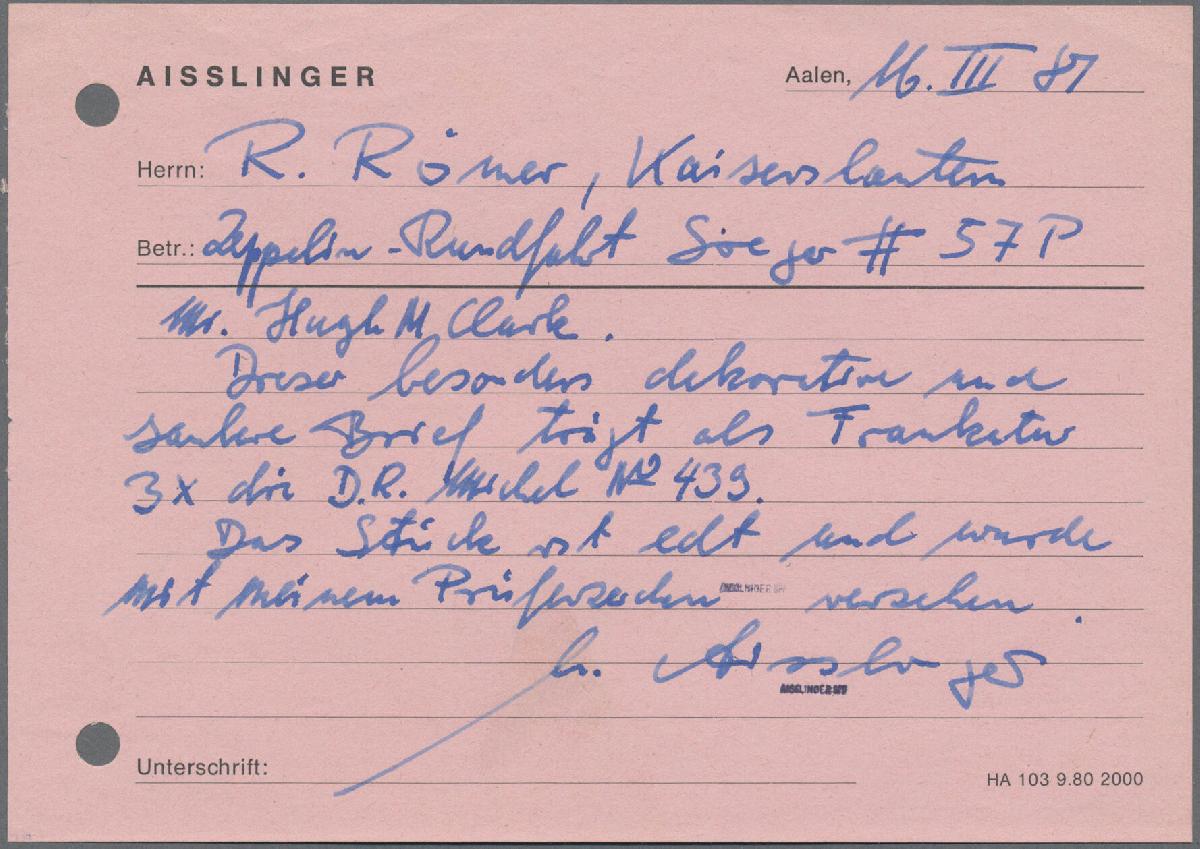 AISSLINGER
Aalen, 16. III 87
Herrn: R. Römer, Kaiserslautern
Betr.: Zeppelin-Rundfahrt Sieger # 57 P
Mr. Hugh M. Clark.
Dieser besonders dekorative und
saubere Brief trägt als Frankatur
3x die D.R. Michel No 439.
Das Stück ist echt und wurde
mit meinem Prüferzeichen AISSLINGER BPP versehen.
h. Aisslinger
AISSLINGER BPP
Unterschrift:
HA 103 9.80 2000